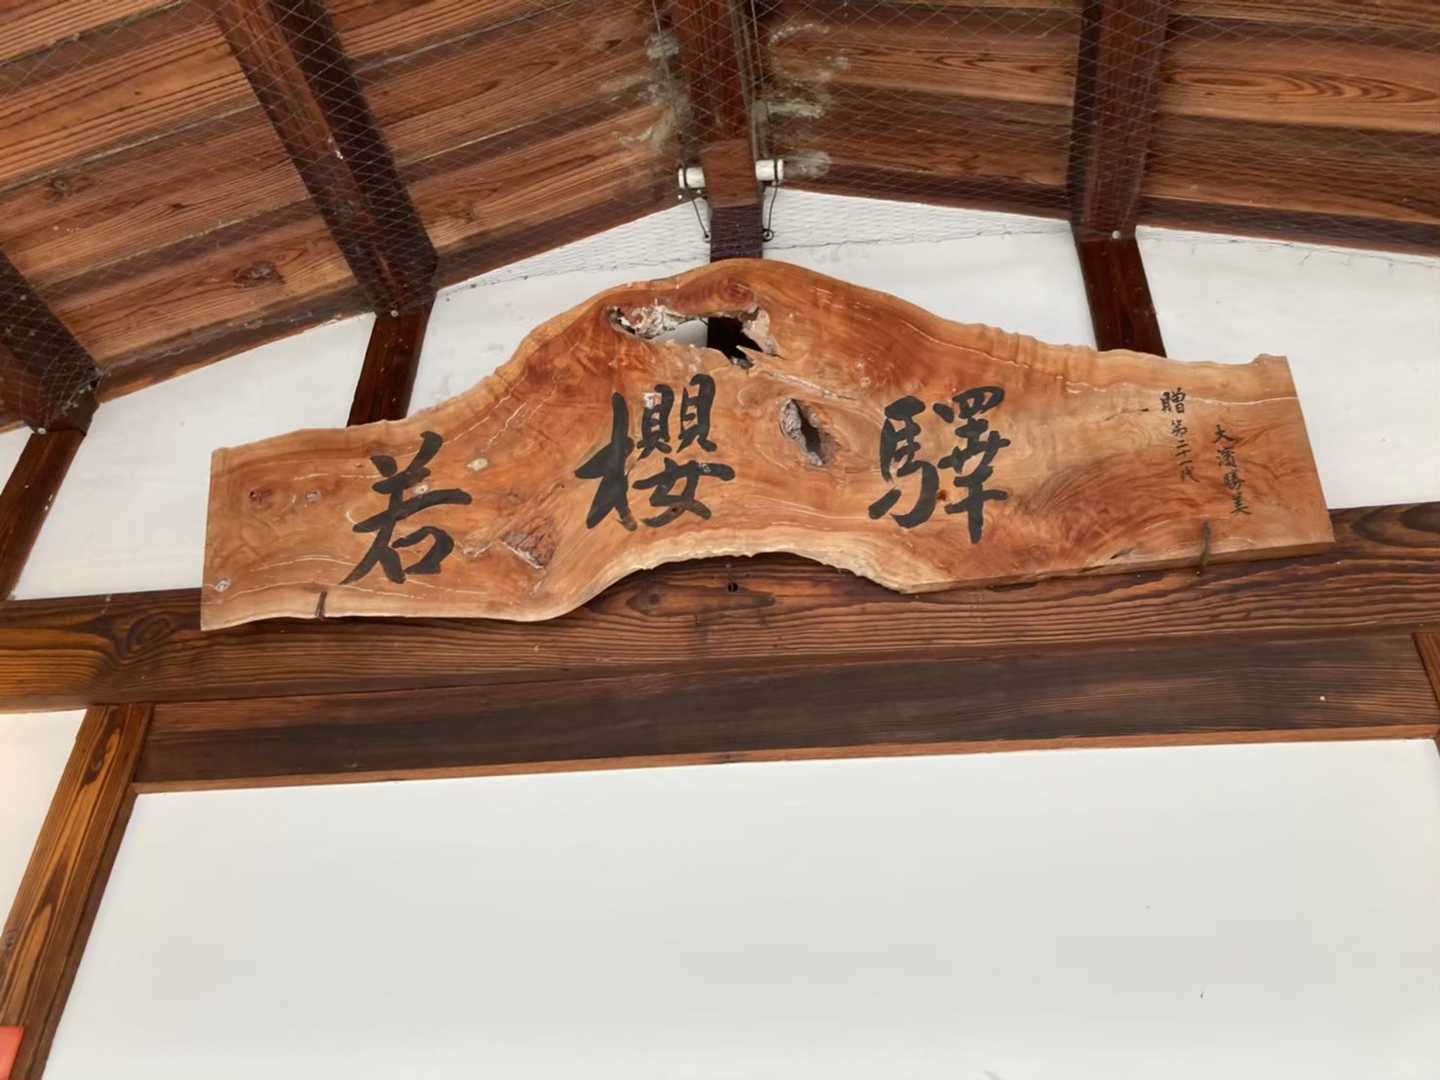 若櫻驛
贈第二十一代
大濱勝美